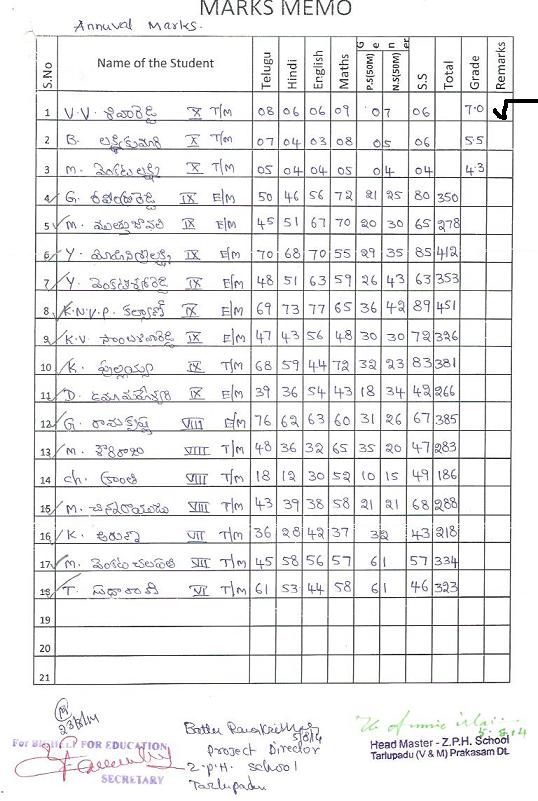 MARKS MEMO
Annuval Marks.
S.No Name of the Student Telugu Hindi English Maths Gen ner P.S(50M) N.S(50M) S.S Total Grade Remarks
1 V.V. శివారెడ్డి X T/M 08 06 06 09 07 06 7.0
2 B. లక్ష్మీకుమారి X T/M 07 04 03 08 05 06 5.5
3 M. వెంకట లక్ష్మి X T/M 05 04 04 05 04 04 4.3
4 G. IX E/M 50 46 56 72 21 25 80 350
5 M. IX E/M 45 51 67 70 20 30 65 278
6 Y. IX E/M 70 68 70 55 29 35 85 412
7 Y. IX E/M 48 51 63 59 26 43 63 353
8 K.N.V.P. కళ్యాణ్ IX E/M 69 73 77 65 36 42 89 451
9 K.V. సాంబశివారెడ్డి IX E/M 47 43 56 48 30 30 72 326
10 K. పుల్లయ్య IX T/M 68 59 44 72 32 23 83 381
11 D. ఉమామహేశ్వరి IX E/M 39 36 54 43 18 34 42 266
12 G. రామకృష్ణ VIII E/M 76 62 63 60 31 26 67 385
13 M. శౌరిరాజు VIII T/M 48 36 32 65 35 20 47 283
14 ch. క్రాంతి VIII T/M 18 12 30 52 10 15 49 186
15 M. చిన్నరాయుడు VIII T/M 43 39 38 58 21 21 68 288
16 K. అరుణ VII T/M 36 28 42 37 32 43 218
17 M. వెంకట చలపతి VII T/M 45 58 56 57 61 57 334
18 T. సుధారాణి VI T/M 61 53 44 58 61 46 323
19
20
21
For EDUCATION
SECRETARY
Project Director
Z.P.H. School
Tarlupadu
5.8.14
Head Master - Z.P.H. School
Tarlupadu (V & M) Prakasam Dt.